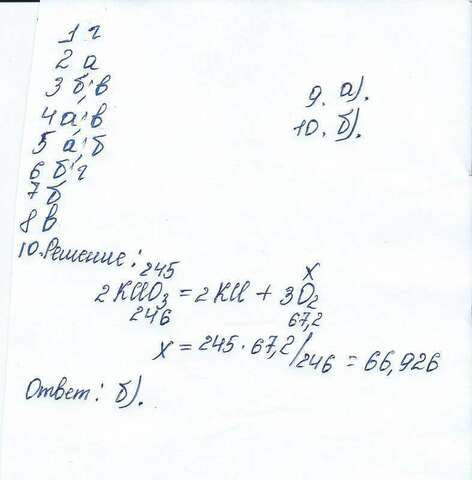 1 г
2 а
3 б; в
4 а; в
5 а; б
6 б; г
7 б
8 в
9. а).
10. б).
10. Решение:
245 x
2KClO3 = 2KCl + 3O2
246 67,2
x = 245 · 67,2/246 = 66,926
Ответ: б).